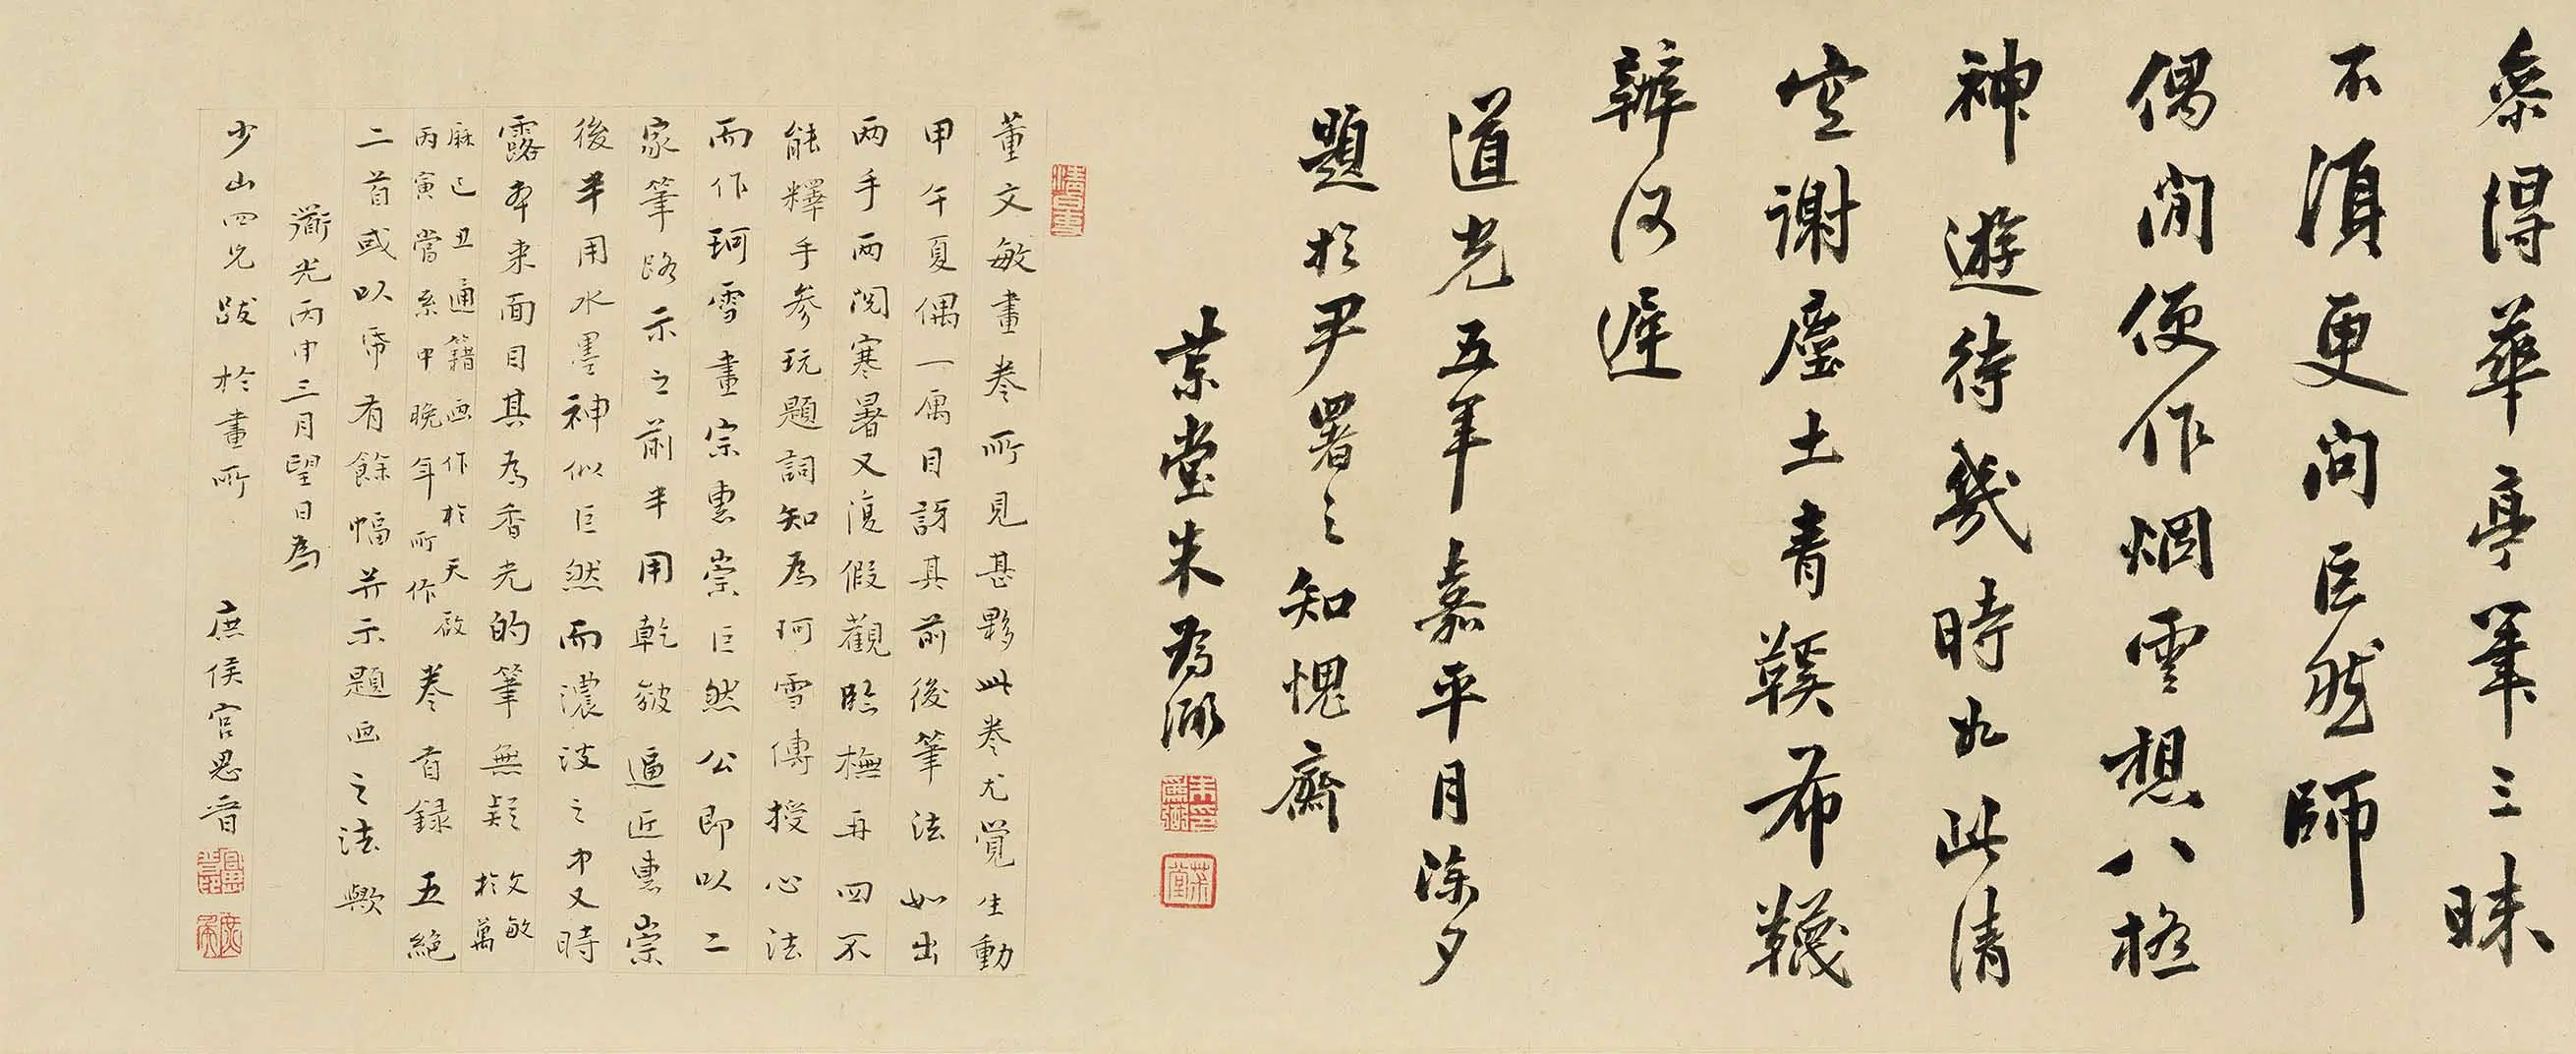 參得華亭筆三昧
不須更問巨然師
偶閒便作烟雲想八極
神遊待幾時如此清
空謝塵土青鞵布韈
辦何遲
道光五年嘉平月除夕
題於尹署之知愧齋
茮堂朱為弼
董文敏畫卷所見甚夥此卷尤覺生動
甲午夏偶一屬目訝其前後筆法如出
两手两閱寒暑又復假觀臨橅再四不
能釋手參玩題詞知為珂雪傳授心法
而作珂雪畫宗惠崇巨然公即以二
家筆路示之前半用乾皴逼近惠崇
後半用水墨神似巨然而濃淡之中又時
露本来面目其為香光的筆無疑文敏於萬
厤己丑通籍画作於天啟丙寅當系中晚年所作卷首録五絶
二首或以帋有餘幅并示題画之法歟
衟光丙申三月望日為
少山四兄跋於畫所 庶侯官思晉